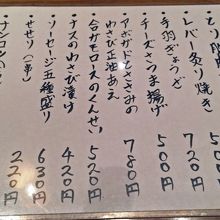 レバー炙り焼き 720円
手羽ぎょうざ 500円
チーズさつま揚げ 500円
アボガドとささみの
わさび正油あえ 780円
合ガモロースのくんせい 520円
ナスのわさび漬け 420円
ソーセージ五種盛り 630円
せせり(串) 220円